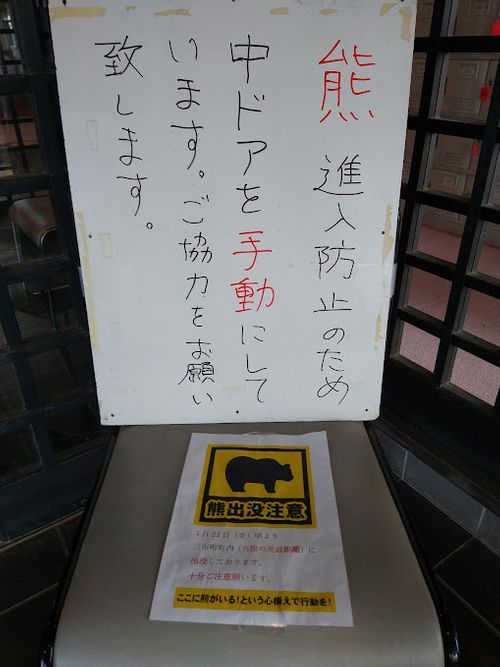 熊 進入防止のため
中ドアを手動にして
います。ご協力をお願い
致します。
熊出没注意
5月22日（金）頃より
三川町町内（当館の至近距離）に
出没しております。
十分ご注意願います。
ここに熊がいる!という心構えで行動を!